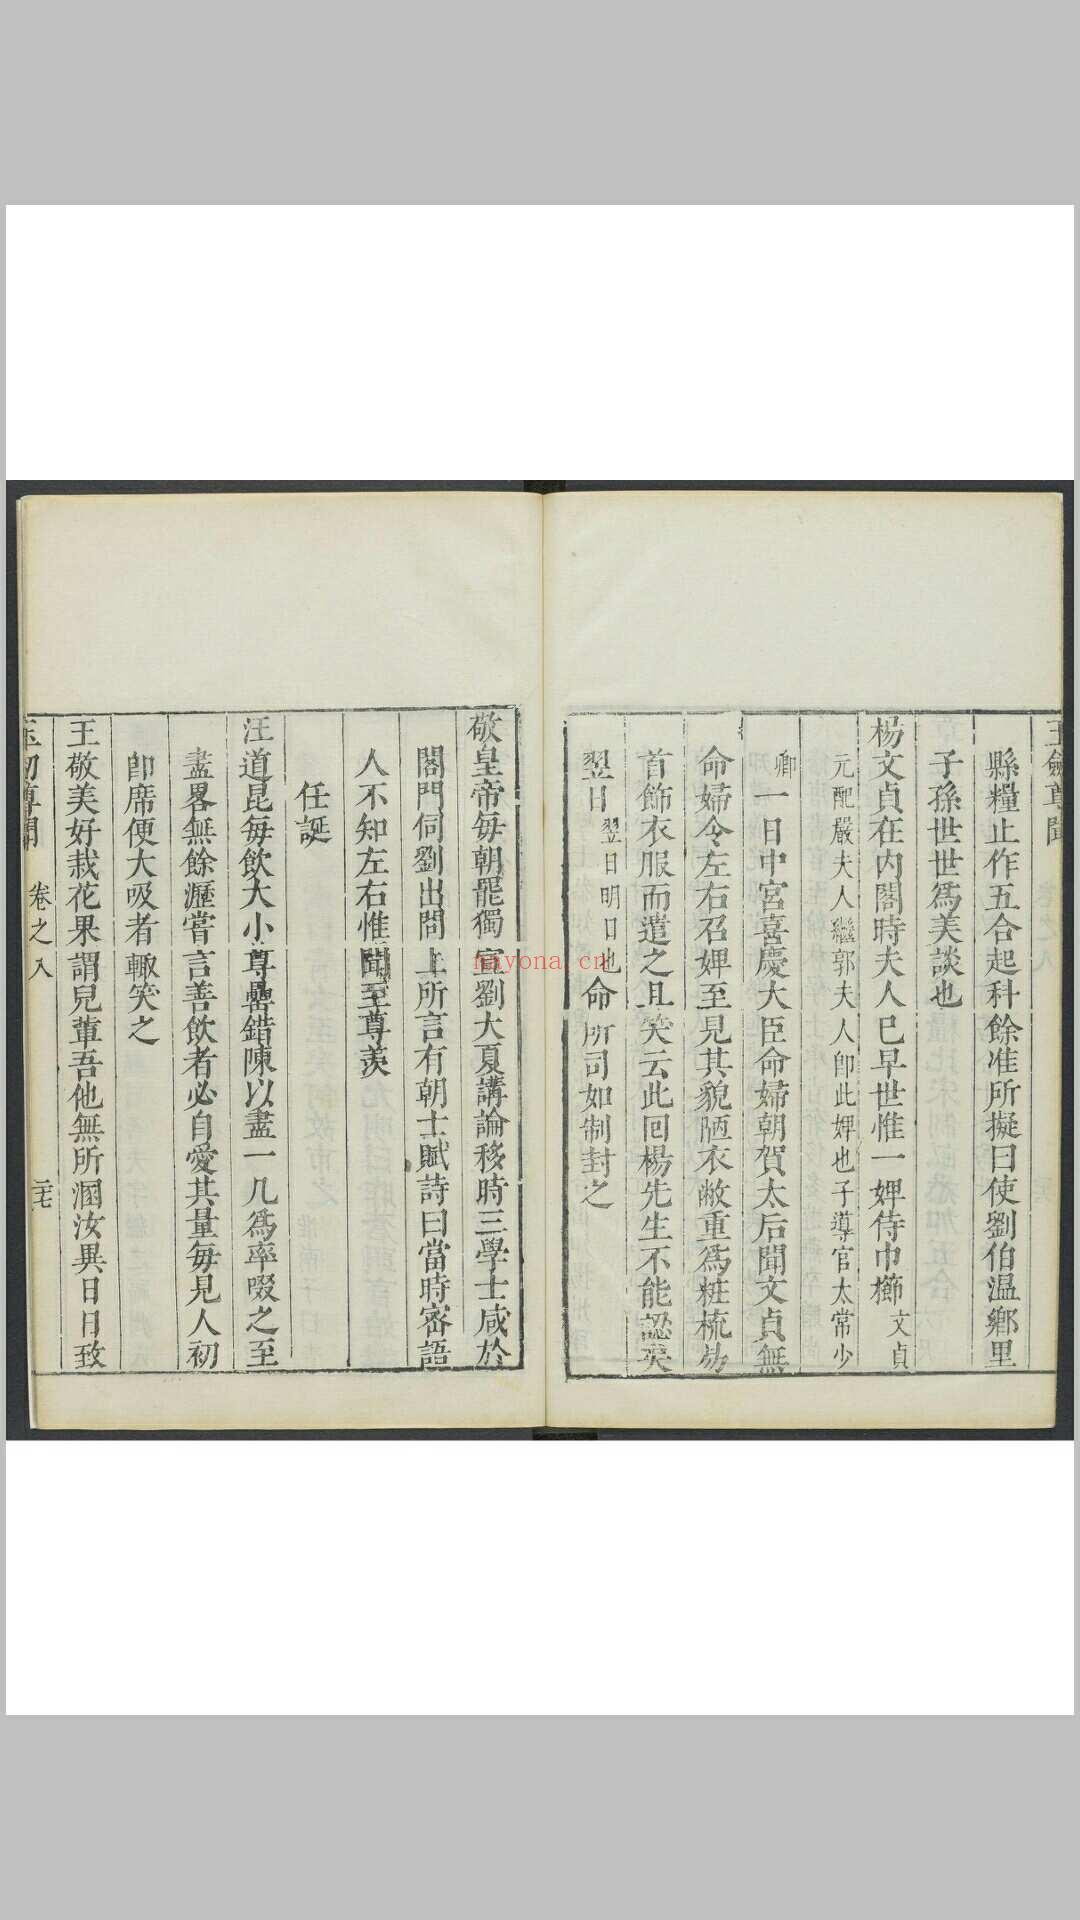 縣糧止作五合起科餘准所擬曰使劉伯温鄉里
子孫世世爲美談也
楊文貞在内閣時夫人巳早世惟一婢侍巾櫛文貞
元配嚴夫人繼郭夫人卽此婢也子導官太常少
卿一日中宮喜慶大臣命婦朝賀太后聞文貞無
命婦令左右召婢至見其貌陋衣敝重爲粧梳易
首飾衣服而遣之且笑云此回楊先生不能認矣
翌日翌日明日也命所司如制封之
敬皇帝每朝罷獨宣劉大夏講論移時三學士咸於
閣門伺劉出問上所言有朝士賦詩曰當時密語
人不知左右惟聞至尊羨
任誕
汪道昆每飲大小尊罍錯陳以盡一几爲率啜之至
盡畧無餘瀝嘗言善飲者必自愛其量每見人初
卽席便大吸者輙笑之
王敬美好栽花果謂兒輩吾他無所溷汝異日日致
卷之八
二七
nayona.cn